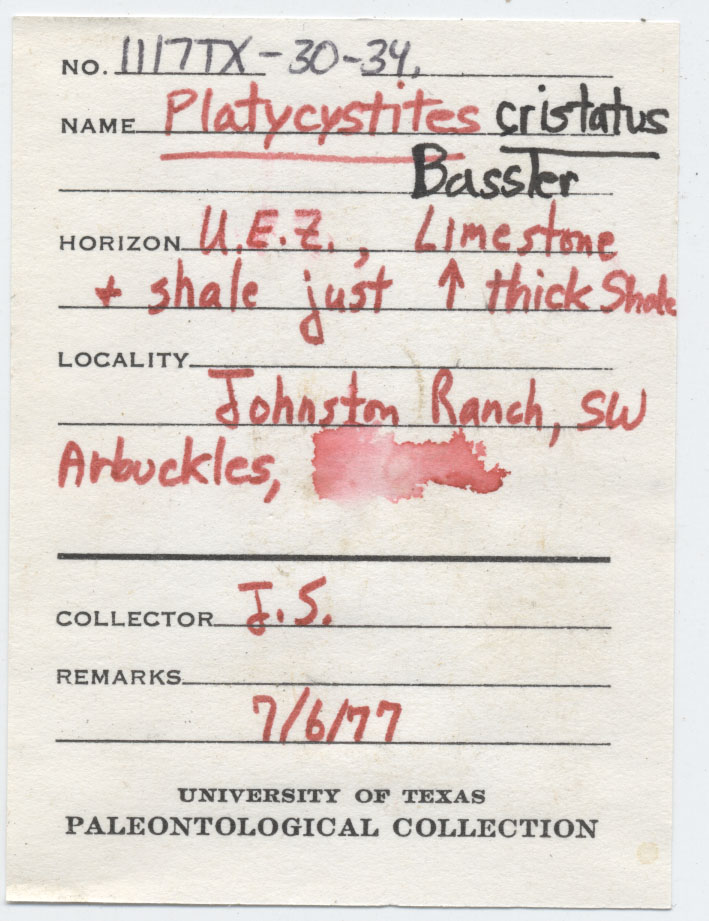 NO. 1117TX-30-34,
NAME Platycystites cristatus
Bassler
HORIZON U.E.Z., Limestone
+ shale just ↑ thick Shale
LOCALITY
Johnston Ranch, SW
Arbuckles,
COLLECTOR J.S.
REMARKS
7/6/77
UNIVERSITY OF TEXAS
PALEONTOLOGICAL COLLECTION